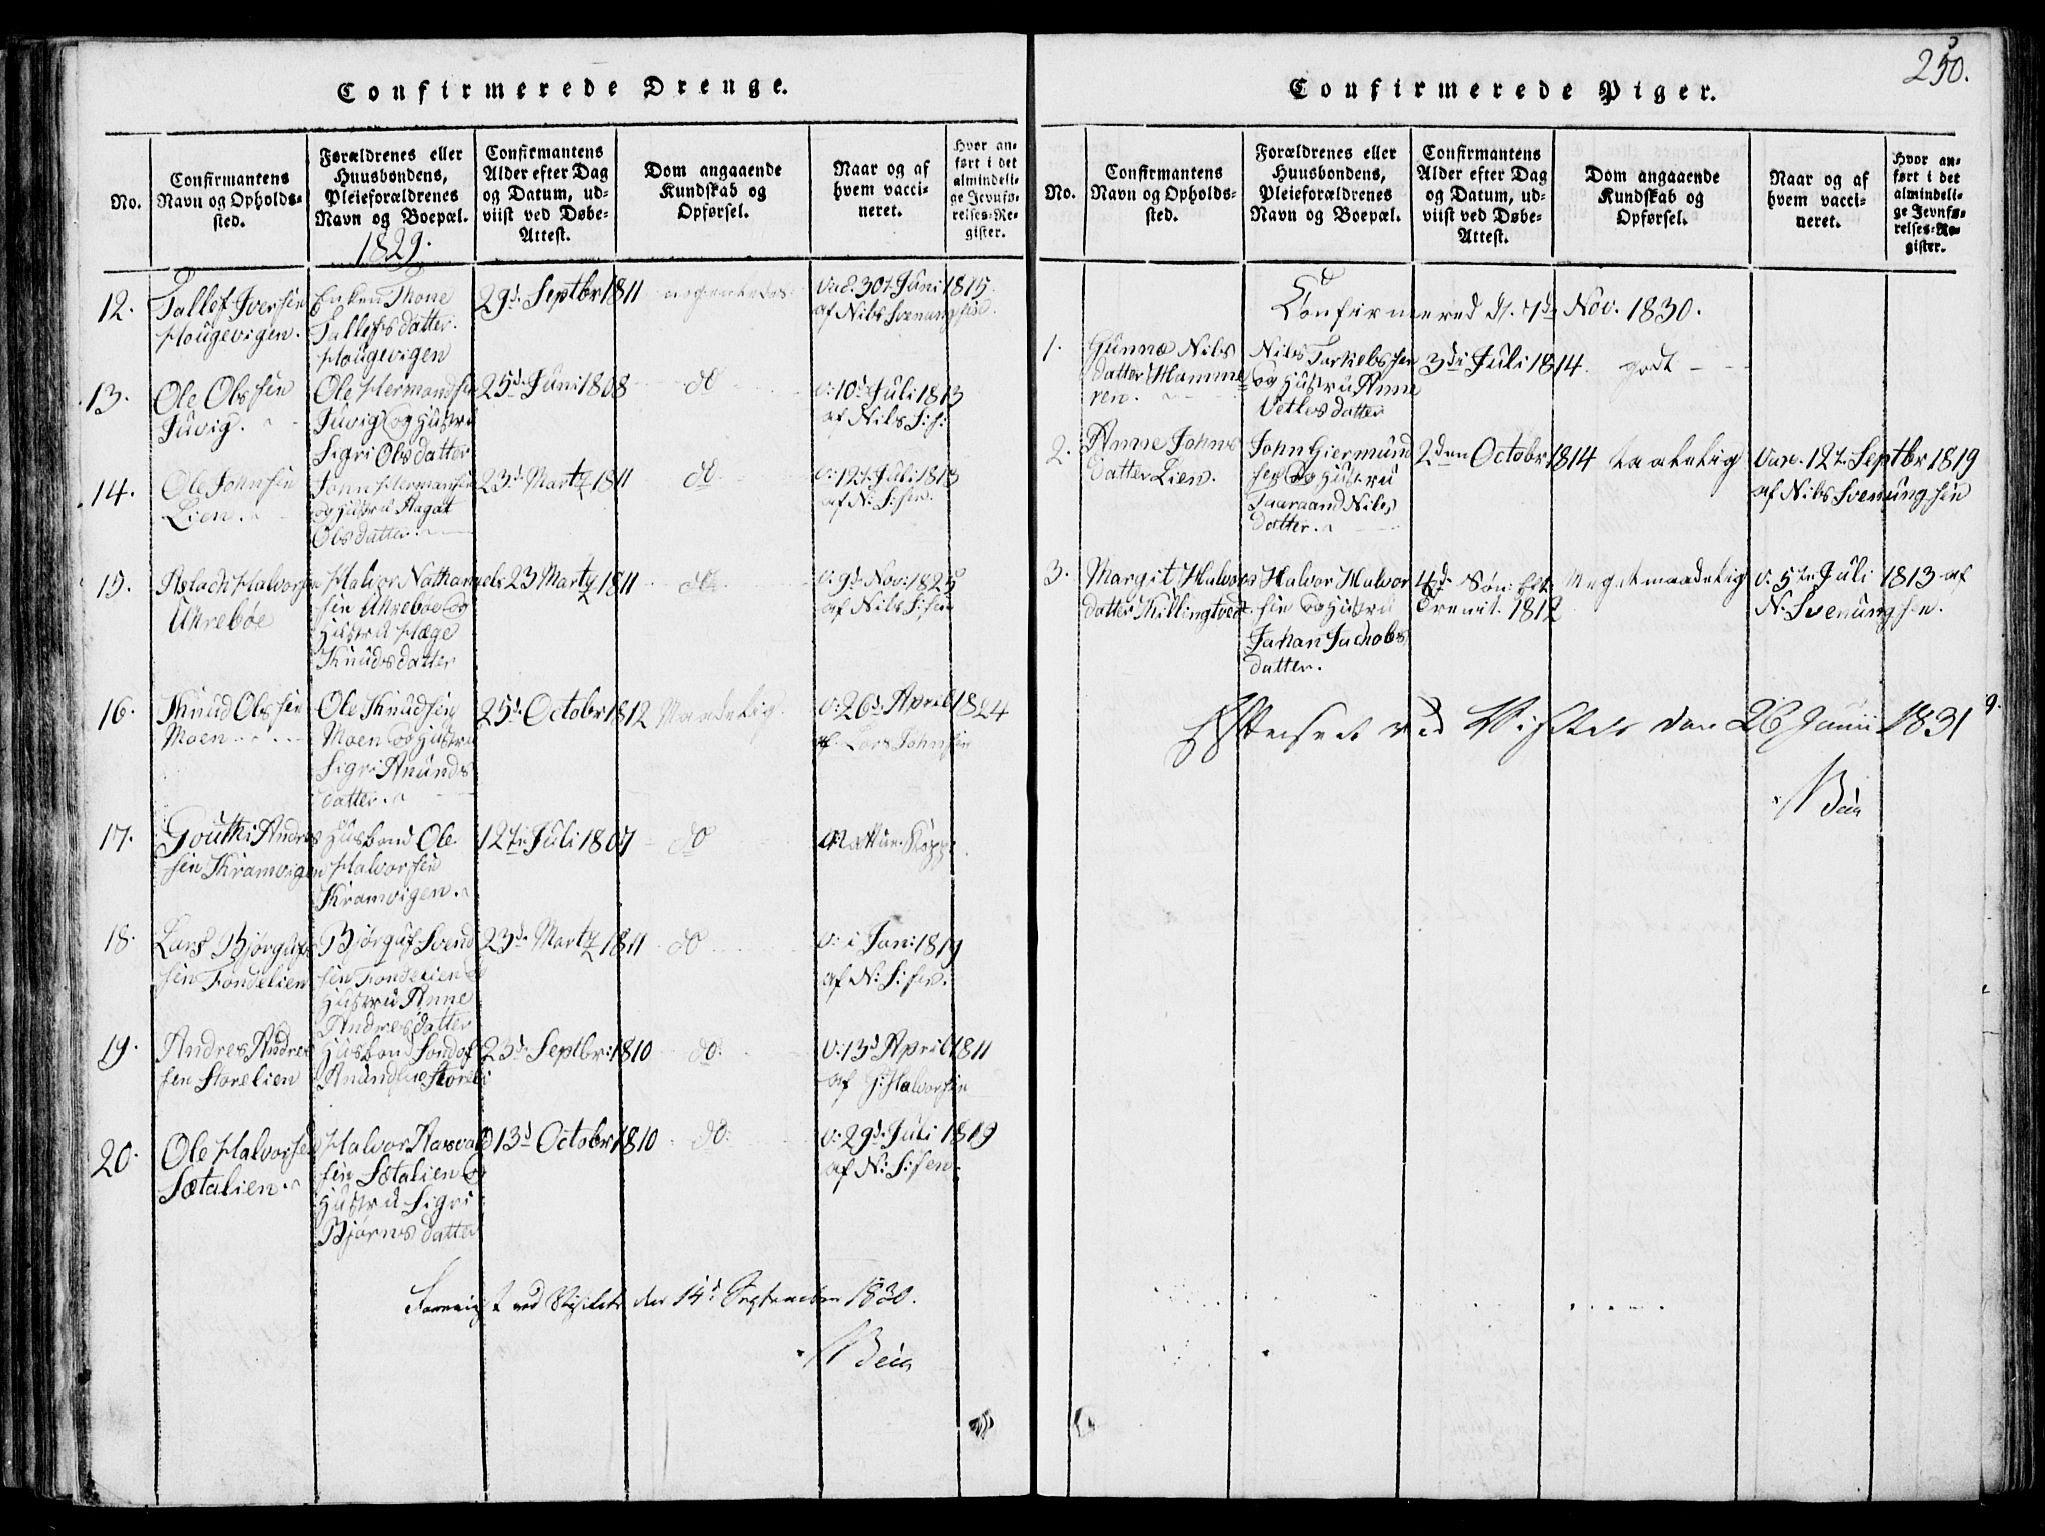 250.
Confirmerede Drenge.
No.
Confirmantens
Navn og Opholds-
sted.
Forældrenes eller
Huusbondens,
Pleieforældrenes
Navn og Boepæl.
1829.
Confirmantens
Alder efter Dag
og Datum, ud-
viist ved Døbe-
Attest.
Dom angaaende
Kundskab og
Opførsel.
Naar og af
hvem vacci-
neret.
Hvor an-
ført i det
almindeli-
ge Jevnfø-
relses-Re-
gister.
12.
Tallef Iversen
Hougevigen.
Enken Thone
Tallefsdatter.
Hougevigen
29d Septbr 1811
Vac. 30t Juni 1815
af Nils Svenungsen.
13.
Ole Olssen
Juvig.
Ole Hermandsen
Juvig og Hustru
Sigri Olsdatter
25d Juni 1808
do
v: 10d Juli 1813
af Nils S:s:
14.
Ole Johnsen
Lien.
John Hermansen
og Hustru Aagat
Olsdatter.
23d Marty 1811
do
v: 12t Juli 1813
af N: S:sen.
15.
Aslach Halvorsen
Uhrebøe
Halvor Nathanaels
sen Uhrebøe og
Hustru Hæge
Knudsdatter
23 Marty 1811
do
v: 9d Nov: 1825
af Nils S:sen
16.
Knud Olssen
Moen
Ole Knudsen
Moen og Hustru
Sigri Anunds
datter.
25d Octobr 1812
Maadelig.
v: 26d April 1824
af Lars Johnsen
17.
Gouthi Andres
sen Kramvigen
Husbond Ole
Halvorsen
Kramvigen.
12te Juli 1807
do
Nattur Kopp.
18.
Lars Bjørgufs
sen Fondelien
Bjørguf Svend
sen Fondelien og
Hustru Anne
Andresdatter
23d Marty 1811
do
v: i Jan: 1819
af N: S:sen.
19.
Andres Andres
sen Storelien
Husbond Sondof
Anundsen Storeli
23d Septbr: 1810
do:
v: 13d April 1811
af G: Halvorsen
20.
Ole Halvorsen
Sætalien
Halvor Aasvald
sen Sætalien og
Hustru Sigri
Bjørnsdatter
13d Octobr 1810
do:
v: 29d Juli 1819
af N: S:sen.
ved Visitats den 14d September 1830.
Confirmerede Piger.
No.
Confirmantens
Navn og Opholds-
sted.
Forældrenes eller
Huusbondens,
Pleieforældrenes
Navn og Boepæl.
Confirmantens
Alder efter Dag
og Datum, ud-
viist ved Døbe-
Attest.
Dom angaaende
Kundskab og
Opførsel.
Naar og af
hvem vacci-
neret.
Hvor an-
ført i det
almindeli-
ge Jevnfø-
relses-Re-
gister.
Confirmered d. 7de Nov. 1830.
1.
Gunnæ Nils
datter Hamme
ren.
Nils Tarkelssen
og Hustru Anne
Vetlesdatter
3de Juli 1814
godt
2.
Anne Johns
datter Lien.
John Giermund
sen og Hustru
Taaraand Nils
datter.
2den Octobr 1814
taalelig
Vac. 12te Septbr 1819
af Nils Svenungsen
3.
Margit Halvors
datter Killingtvedt
Halvor Halvor
sen og Hustru
Johan Jachobs
datter.
4d Søn: Eft
Trenit. 1812
Meget maadelig
v. 5te Juli 1813 af
N. Svenungsen.
ved Visitats den 26 Junii 1831